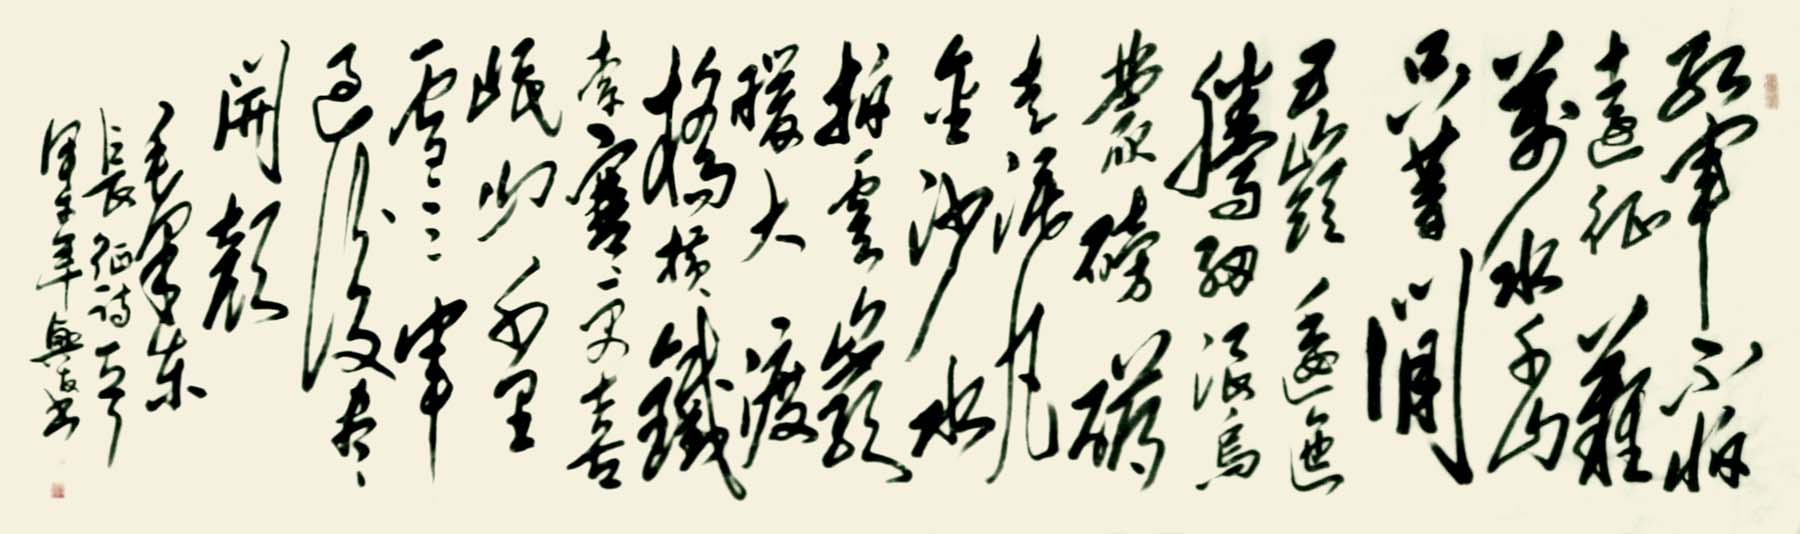 紅軍不怕
遠征難
萬水千山
只等閒
五嶺逶迤
騰細浪烏
蒙磅礴
走泥丸
金沙水
拍雲巖
暖大渡
橋橫鐵
索寒更喜
岷山千里
雪三軍
過後盡
開顏
毛澤東
長征詩一首
年興書